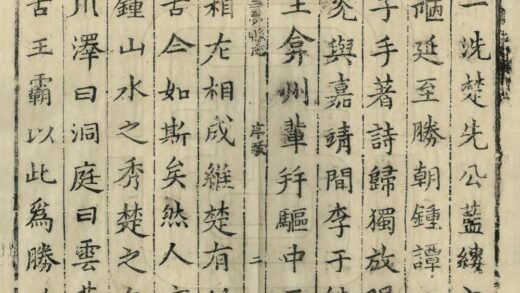 一洗楚先公藍縷
陋延至勝朝鍾譚
子手著詩歸獨放
與嘉靖間李于
王弇州輩幷驅中
序
二
相左相成維楚有
古今如斯矣然人
鍾山水之秀楚之
川澤曰洞庭曰雲
古王霸以此爲勝